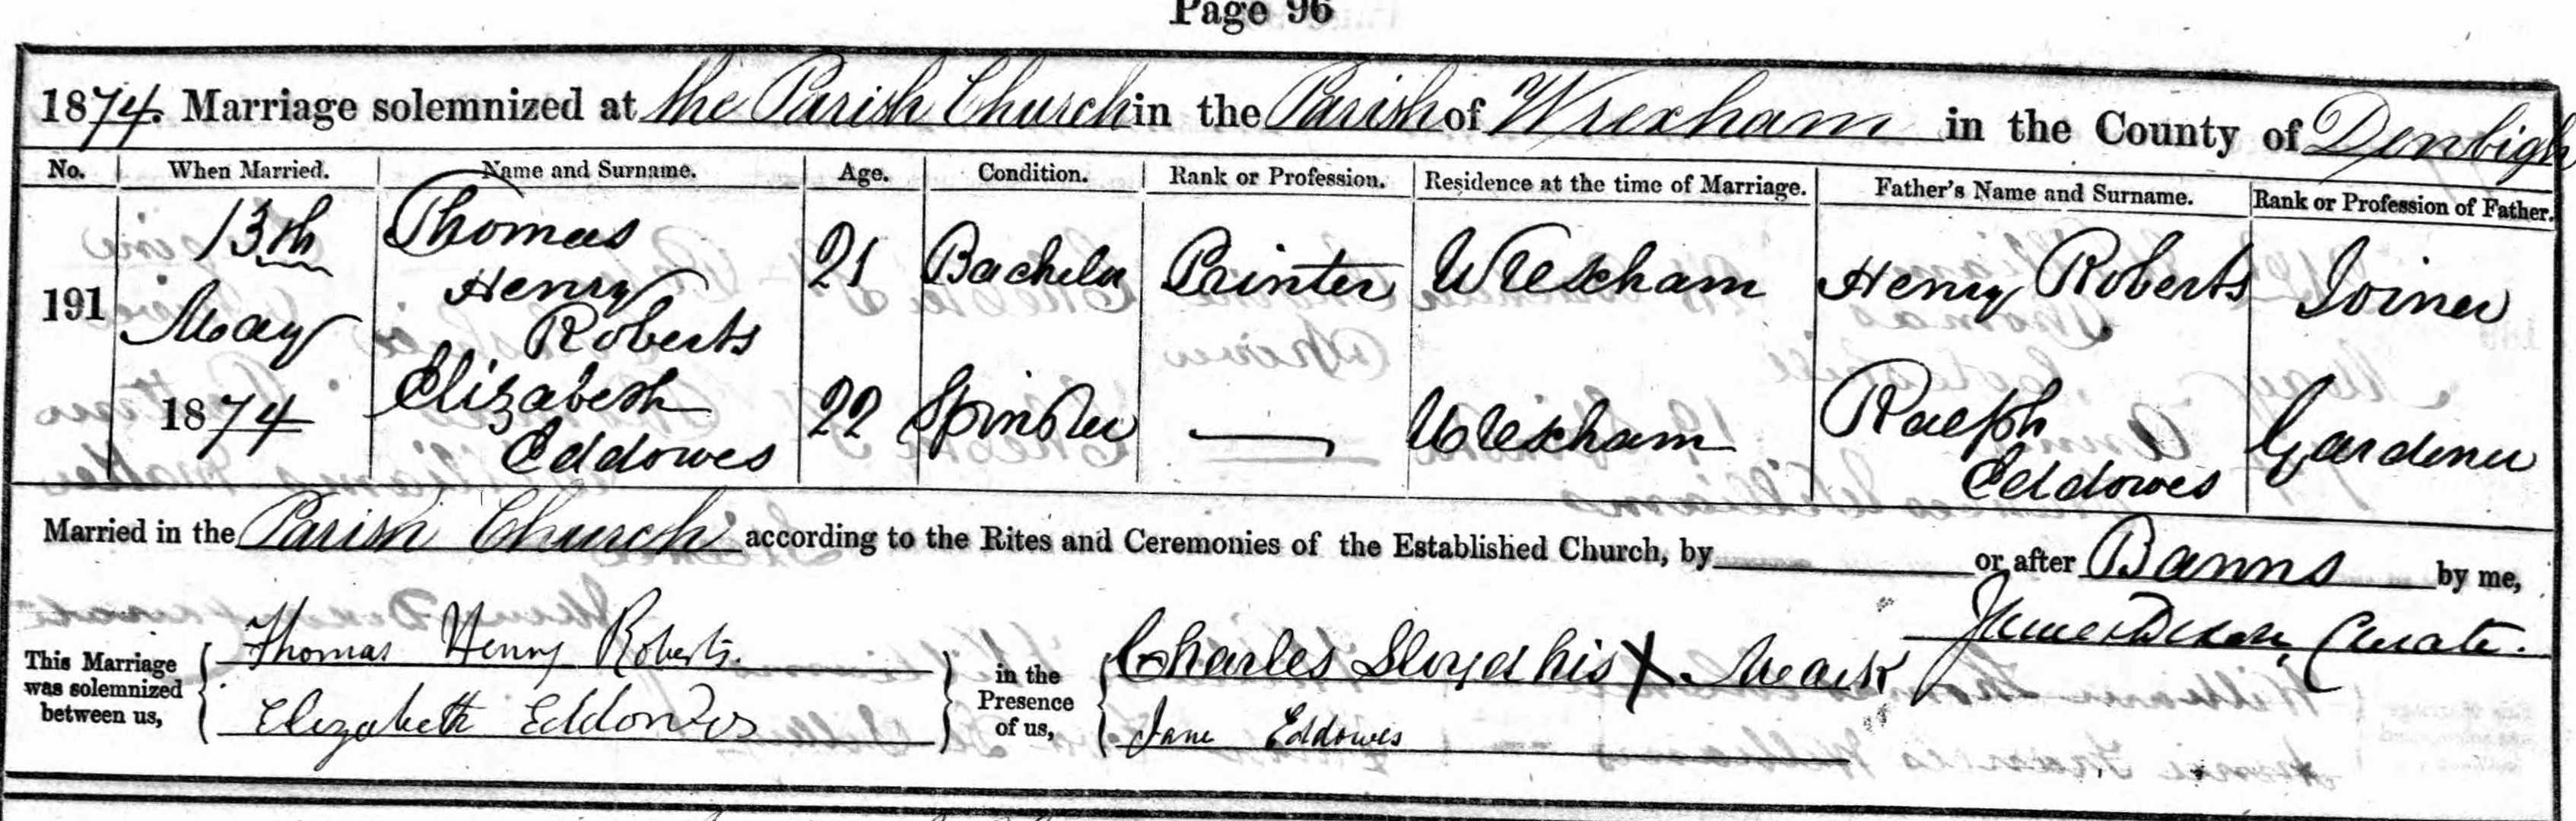 Page 96
1874. Marriage solemnized at the Parish Church in the Parish of Wrexham in the County of Denbigh
No. When Married. Name and Surname. Age. Condition. Rank or Profession. Residence at the time of Marriage. Father's Name and Surname. Rank or Profession of Father.
191 13th May 1874 Thomas Henry Roberts 21 Bachelor Printer Wrexham Henry Roberts Joiner
Elizabeth Eddowes 22 Spinster — Wrexham Ralph Eddowes Gardener
Married in the Parish Church according to the Rites and Ceremonies of the Established Church, by or after Banns by me,
James Dixon, Curate.
This Marriage was solemnized between us, Thomas Henry Roberts in the Presence of us, Charles Lloyd his X Mark
Elizabeth Eddowes Jane Eddowes